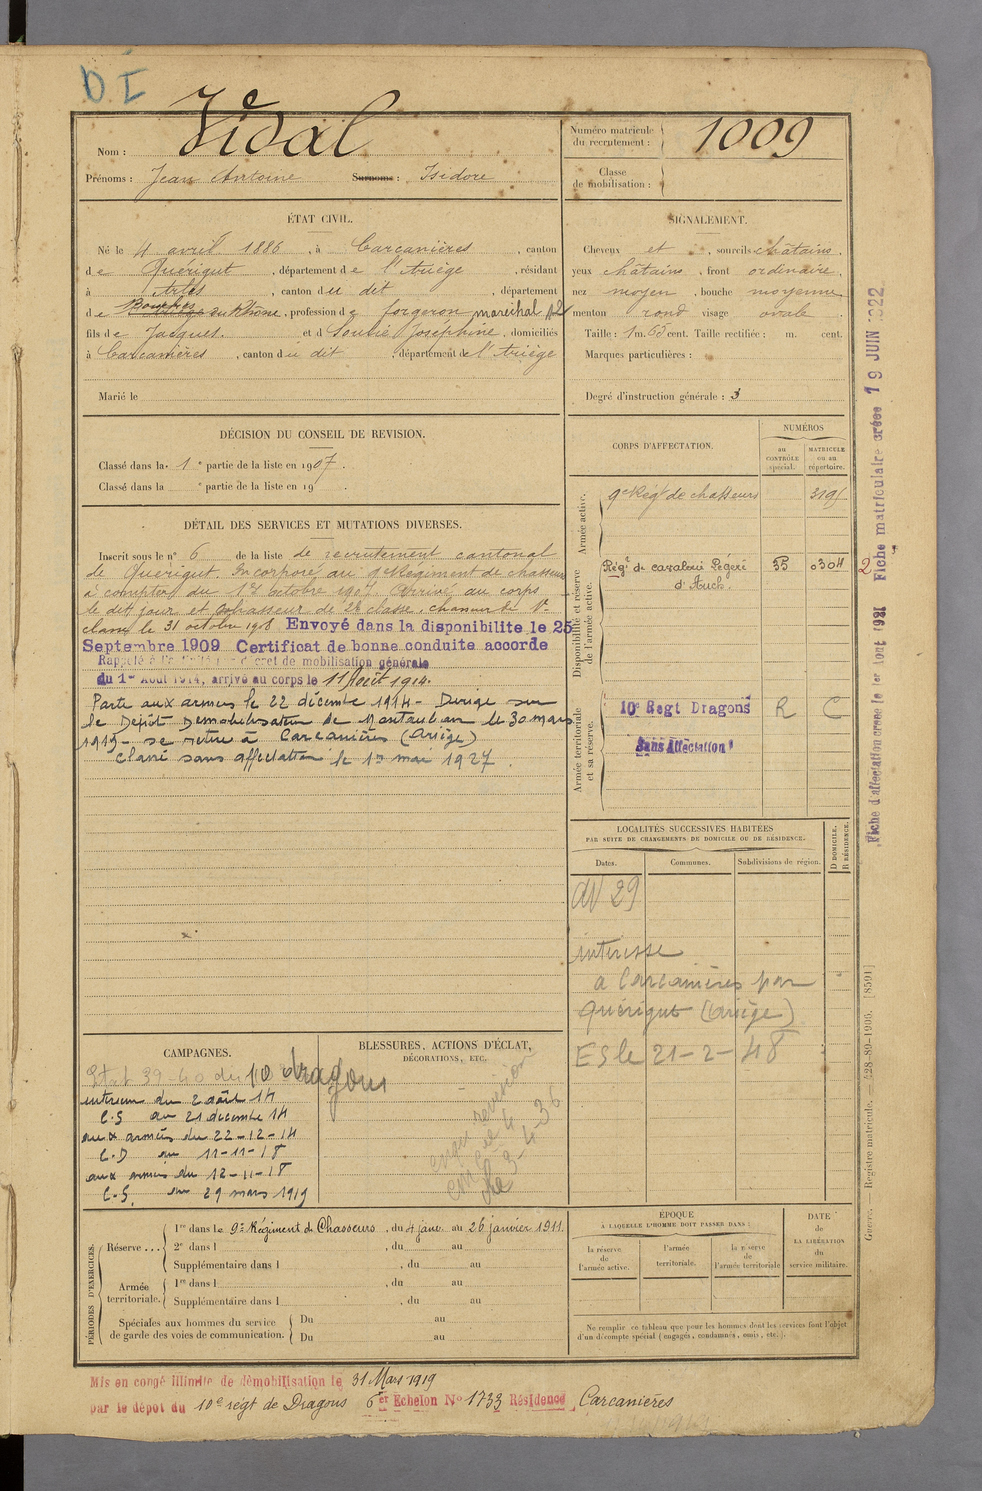 DI
Nom : Vidal
Numéro matricule du recrutement : 1009
Prénoms : Jean Antoine Surnoms : Isidore
Classe de mobilisation :
ÉTAT CIVIL.
Né le 4 avril 1886, à Carcanières, canton
de Quérigut, département de l'Ariège, résidant
à Arles, canton du dit, département
de Bouches du Rhône, profession de forgeron marechal p2
fils de Jacques et d Soulié Joséphine, domiciliés
à Carcanières, canton du dit, département de l'Ariège
Marié le
SIGNALEMENT.
Cheveux et, sourcils châtains,
yeux châtains, front ordinaire,
nez moyen, bouche moyenne,
menton rond visage ovale.
Taille : 1 m. 65 cent. Taille rectifiée : m. cent.
Marques particulières :
Degré d'instruction générale : 3
DÉCISION DU CONSEIL DE REVISION.
Classé dans la 1e partie de la liste en 1907.
Classé dans la e partie de la liste en 19
DÉTAIL DES SERVICES ET MUTATIONS DIVERSES.
Inscrit sous le n° 6 de la liste de recrutement cantonal
de Quérigut. Incorporé au 9e Régiment de chasseurs
à compter du octobre 1907 Arrivé au corps
le dit jour et chasseur de 2e classe. chasseur de 1e
classe le 31 octobre 1908 Envoyé dans la disponibilite le 25
Septembre 1909 Certificat de bonne conduite accorde
Rappelé à l'activité décret de mobilisation générale
du 1er Août 1914, arrivé au corps le 11 Août 1914.
Parti aux armées le 22 décembre 1914 - Dirigé sur
le Dépôt Démobilisateur de Montauban le 30 mars
1919 - se retire à Carcanières (Ariège)
Classé sans affectation le 1er mai 1927.
CORPS D'AFFECTATION.
NUMÉROS
au CONTRÔLE spécial.
MATRICULE ou au répertoire.
Armée active.
9e Régt de chasseurs 3191
Disponibilité et réserve de l'armée active.
Régt de cavalerie légère 35 0304 2
d'Auch.
Armée territoriale et sa réserve.
10e Regt Dragons R C
Sans Affectation
LOCALITÉS SUCCESSIVES HABITÉES
PAR SUITE DE CHANGEMENTS DE DOMICILE OU DE RÉSIDENCE.
Dates. Communes. Subdivisions de région. D DOMICILE. R RÉSIDENCE.
29
interesse
a Carcanières par
Quérigut (Ariège)
ES le 21-2-48
CAMPAGNES.
Etat 39-40 du 10 dragons
intérieur du 2 août 14
C.S au 21 décembre 14
aux armées du 22-12-14
C.D au 11-11-18
aux armées du 12-11-18
C.S. au 29 mars 1919
BLESSURES, ACTIONS D'ÉCLAT,
DÉCORATIONS, ETC.
revision
3-4-36
PÉRIODES D'EXERCICES.
Réserve ... 1re dans le 9e Régiment de Chasseurs, du 4 janv. au 26 janvier 1911.
2e dans l , du au
Supplémentaire dans l , du au
Armée territoriale. 1re dans l , du au
Supplémentaire dans l , du au
Spéciales aux hommes du service de garde des voies de communication. Du au
Du au
ÉPOQUE
À LAQUELLE L'HOMME DOIT PASSER DANS :
la réserve de l'armée active.
l'armée territoriale.
la réserve de l'armée territoriale
DATE de LA LIBÉRATION du service militaire.
Ne remplir ce tableau que pour les hommes dont les services font l'objet
d'un décompte spécial (engagés, condamnés, omis, etc.).
Mis en congé illimité de démobilisation le 31 Mars 1919
par le dépôt du 10e régt de Dragons 6er Echelon No 1733 Résidence Carcanières
Fiche matriculaire créée 19 JUIN 1922
Fiche d'affectation créée le 1er Aout 1931
Guerre. Registre matricule. 428-89-1906. [8591]